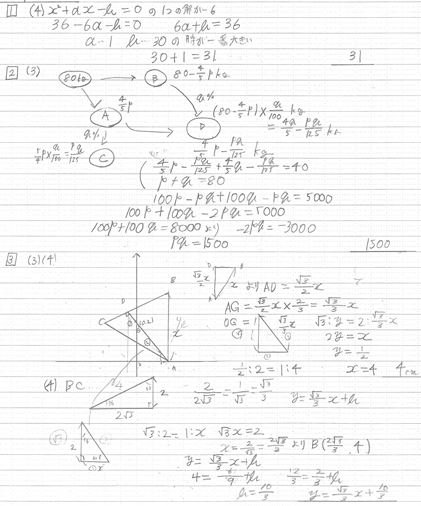 1 (4) x²+ax-b=0 の1つの解が-6
36-6a-b=0 6a+b=36
a…1 b…30の時が一番大きい
30+1=31 31
2 (3)
80kg B 80-4/5p kg
A 4/5p q%
q% D (80-4/5p)×q/100 kg
=4q/5-pq/125 kg
4/5p×q/100=pq/125 C 4/5p-pq/125 kg
4/5p-pq/125+4/5q-pq/125=40
p+q=80
100p-pq+100q-pq=5000
100p+100q-2pq=5000
100p+100q=8000より -2pq=-3000
pq=1500 1500
3 (3)(4)
B
D
C (0,2)
A
√3/2x x より AD=√3/2x
AG=√3/2x×2/3=√3/3x
OG= √3:y=2:√3/3x
2y=x
y=1/2
1/2:2=1:4 x=4 4cm
(4) BC…
2
2√3
2/2√3=1/√3=√3/3 y=√3/3x+b
√3:2=1:x √3x=2
x=2/√3=2√3/3 より B(2√3/3,4)
y=√3/3x+b
4=6/9+b 12/3=2/3+b
b=10/3 y=√3/3x+10/3